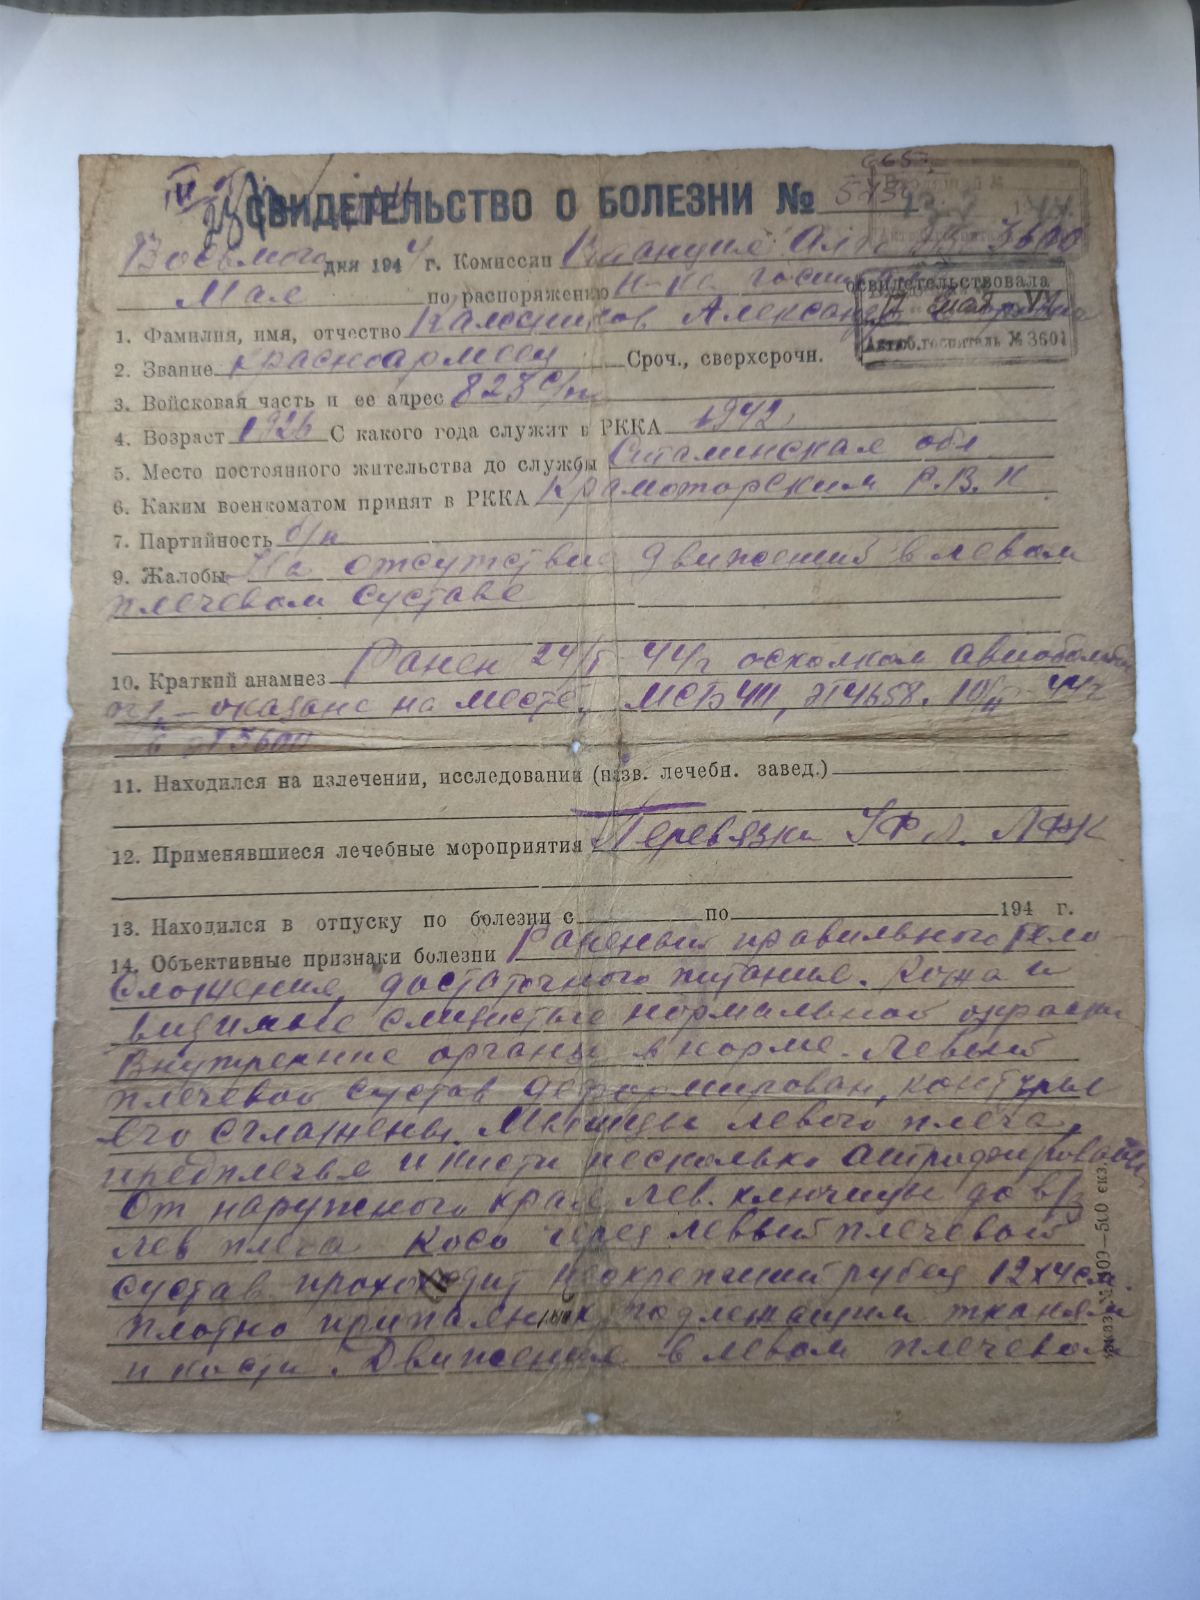 665
СВИДЕТЕЛЬСТВО О БОЛЕЗНИ №
Восьмого дня 1944 г. Комиссия 3600
Мая по распоряжению н-ка госпиталя
освидетельствовала
17 мая VII
Актюб.госпиталь № 3601
1. Фамилия, имя, отчество Калесников Александр
2. Звание красноармеец Сроч., сверхсрочн.
3. Войсковая часть и ее адрес 823 с/п
4. Возраст 1926 С какого года служит в РККА 1942
5. Место постоянного жительства до службы Сталинская обл
6. Каким военкоматом принят в РККА Краматорским Р.В.К
7. Партийность б/п
9. Жалобы На отсутствие движений в левом
плечевом суставе
10. Краткий анамнез Ранен 24/I 44г осколком авиобомбы
– оказана на месте, МСБ 411, эг 4658. 10/III-44г
в эг 3600
11. Находился на излечении, исследовании (назв. лечебн. завед.)
12. Применявшиеся лечебные мероприятия Перевязки УФЛ. ЛФК
13. Находился в отпуску по болезни с по 194 г.
14. Объективные признаки болезни Раненый правильного тело
сложения, достаточного питания. Кожа и
видимые слизистые нормальной окраски
Внутренние органы в норме. Левый
плечевой сустав деформирован, контуры
его сглажены. Мышцы левого плеча,
предплечья и кисти несколько атрофированы
От наружного края лев. ключицы до в/з
лев плеча косо через левый плечевой
сустав проходит неокрепший рубец 12х4см.
плотно припаянный к подлежащим тканям
и кости. Движения в левом плечевом
–500 экз.